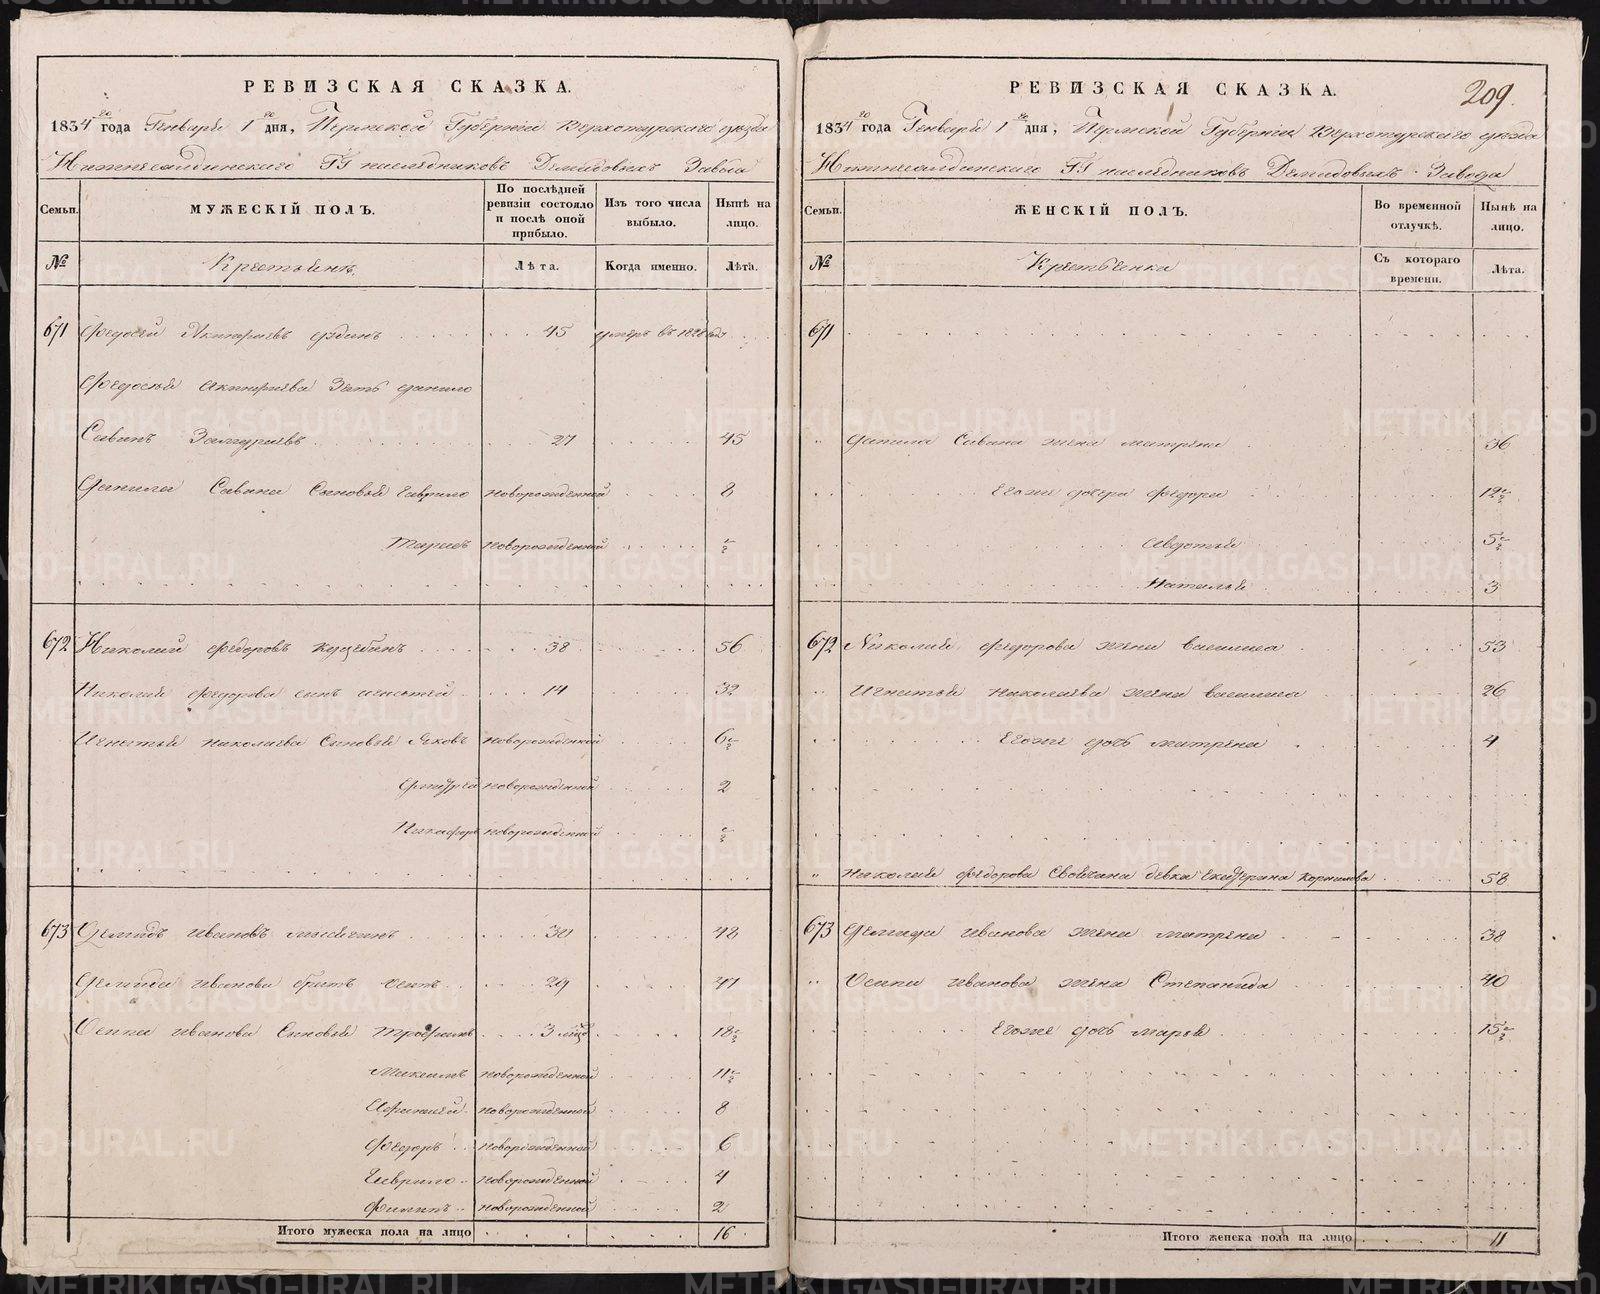 РЕВИЗСКАЯ СКАЗКА.
1834го года Генваря 1го дня, Пермской Губернии Верхотурского уезда
Нижнесалдинского ГГ наследниковъ Демидовыхъ Завода
Семьи.
МУЖЕСКІЙ ПОЛЪ.
По послѣдней ревизіи состояло и послѣ оной прибыло.
Изъ того числа выбыло.
Нынѣ на лицо.
№
Крестьянъ.
Лѣта.
Когда именно.
Лѣта.
671 Федосей Акинфиевъ 45 умеръ въ 1828 году
Федосея Акинфиева Зять Данило
Савинъ 27 45
Данила Савина Сыновья Гаврило новорожденной 8
новорожденной ½
672 Николай Федоровъ 38 56
Николая Федорова сынъ Игнатей 14 32
Игнатья Николаева Сыновья Яковъ новорожденной 6½
новорожденной 2
Никафоръ новорожденной ½
673 Демидъ Ивановъ 30 48
Демида Иванова братъ Осипъ 29 47
Осипа Иванова Сыновья Трофимъ 3 18½
Михаилъ новорожденной 11½
новорожденной 8
Федоръ новорожденной 6
Гаврило новорожденной 4
Филипъ новорожденной 2
Итого мужеска пола на лицо 16
209.
РЕВИЗСКАЯ СКАЗКА.
1834го года Генваря 1го дня, Пермской Губернии Верхотурского уезда
Нижнесалдинского ГГ наследниковъ Демидовыхъ Завода
Семьи.
ЖЕНСКІЙ ПОЛЪ.
Во временной отлучкѣ.
Нынѣ на лицо.
№
Крестьянка
Съ котораго времени.
Лѣта.
671
" Данила Савина жена Матрена 36
Егоже дочери Федора 12½
Авдотья 5½
Наталья 3
672 Николая Федорова жена Василиса 53
" Игнатья Николаева жена Василиса 26
Егоже дочь Матрена 4
" Николая Федорова Своячина девка Екатерина Корнилова 58
673 Демида Иванова жена Матрена 38
" Осипа Иванова жена Степанида 40
Егоже дочь Марья 15½
Итого женска пола на лицо 11
METRIKI.GASO-URAL.RU